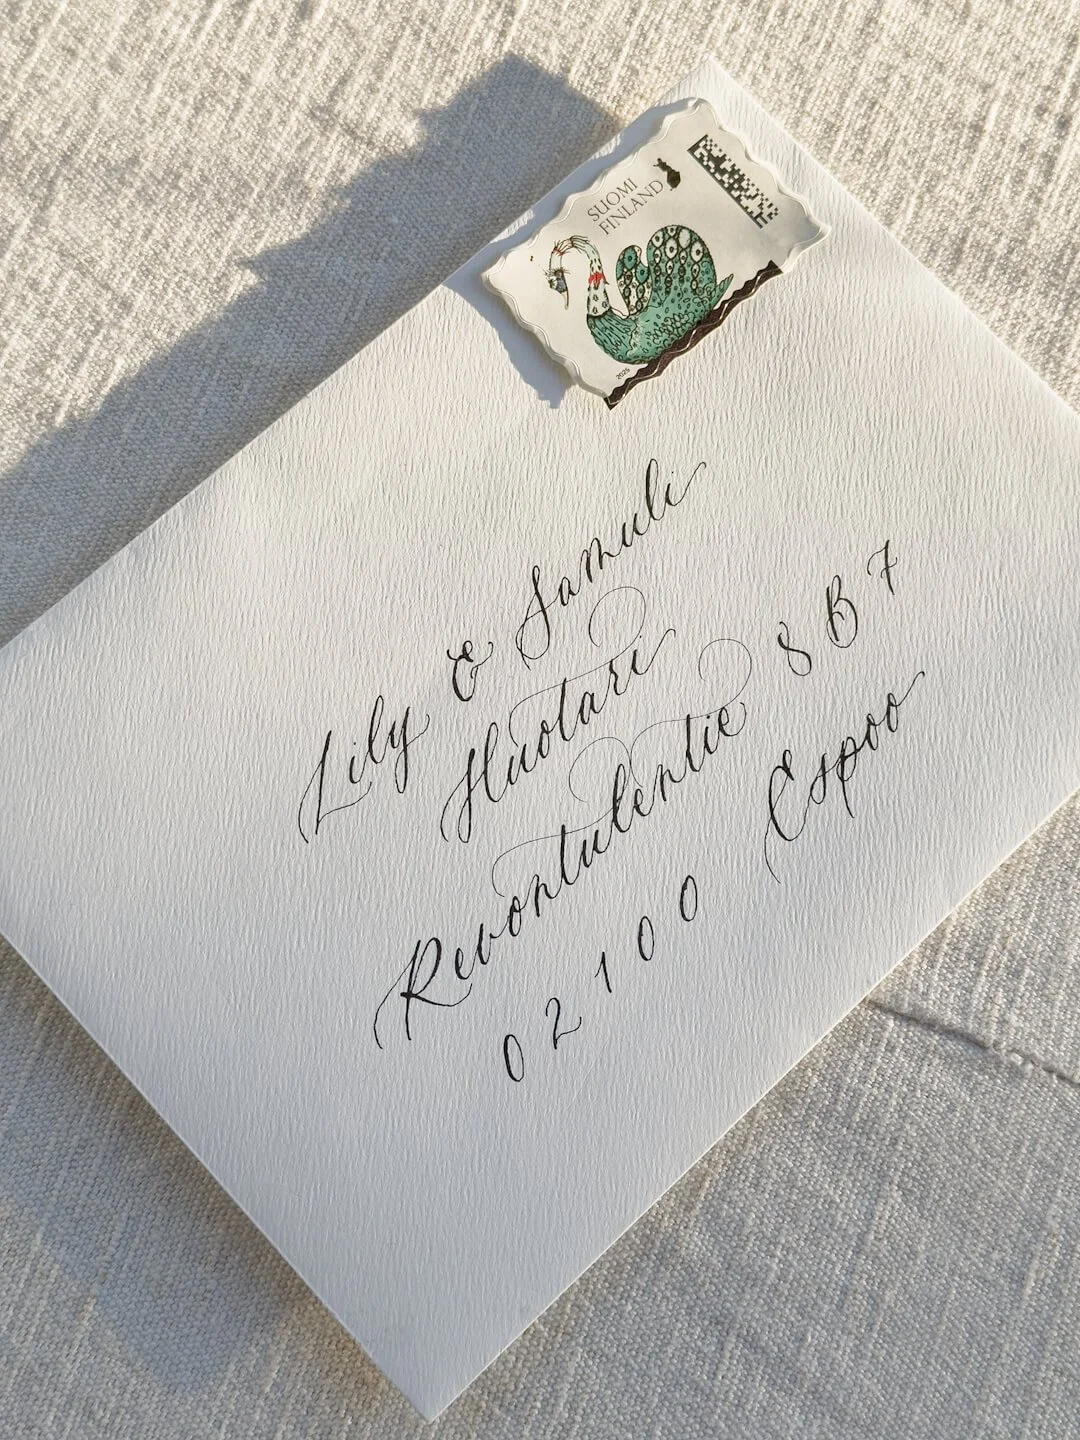 SUOMI
FINLAND
2025
Lily & Samuli
Huotari
Revontulentie 8 B 7
02100 Espoo